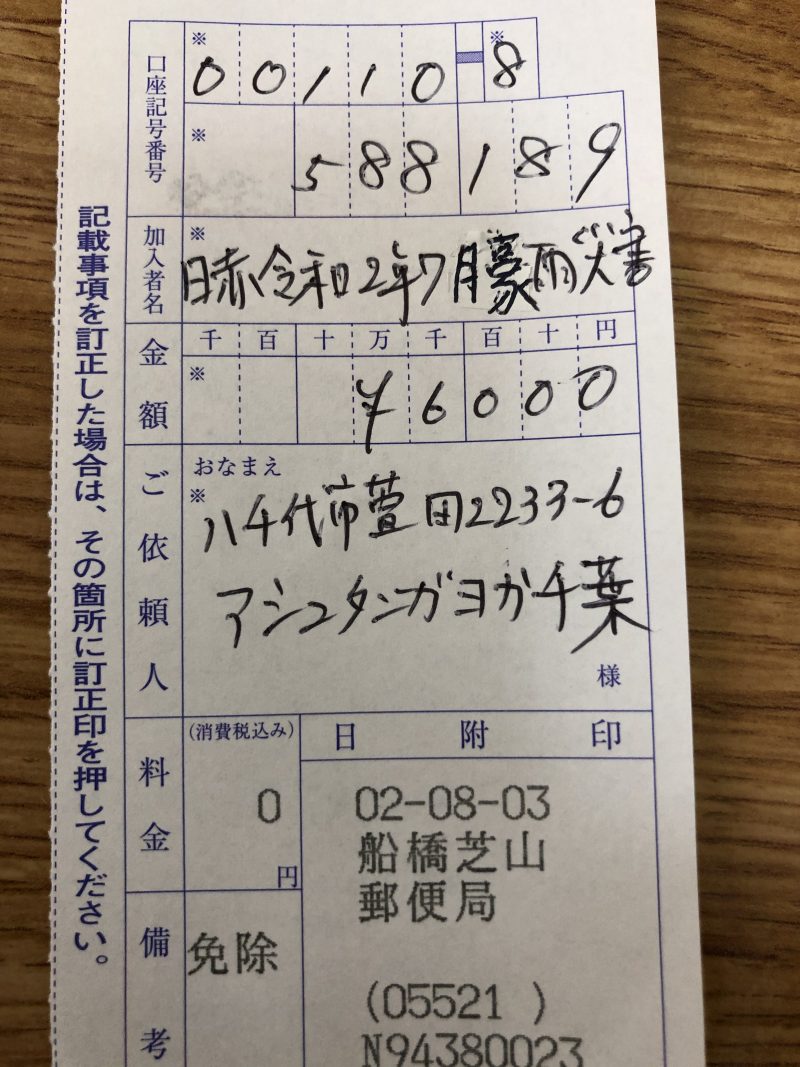 記載事項を訂正した場合は、その箇所に訂正印を押してください。
口座記号番号
※ ※
00110-8
※
588189
加入者名
※
日赤令和2年7月豪雨災害
金額
千百十万千百十円
※
¥6000
ご依頼人
おなまえ
※
八千代市萱田2233-6
アシュタンガヨガ千葉
様
料金
(消費税込み)
0
円
日附印
02-08-03
船橋芝山
郵便局
(05521 )
N94380023
備考
免除